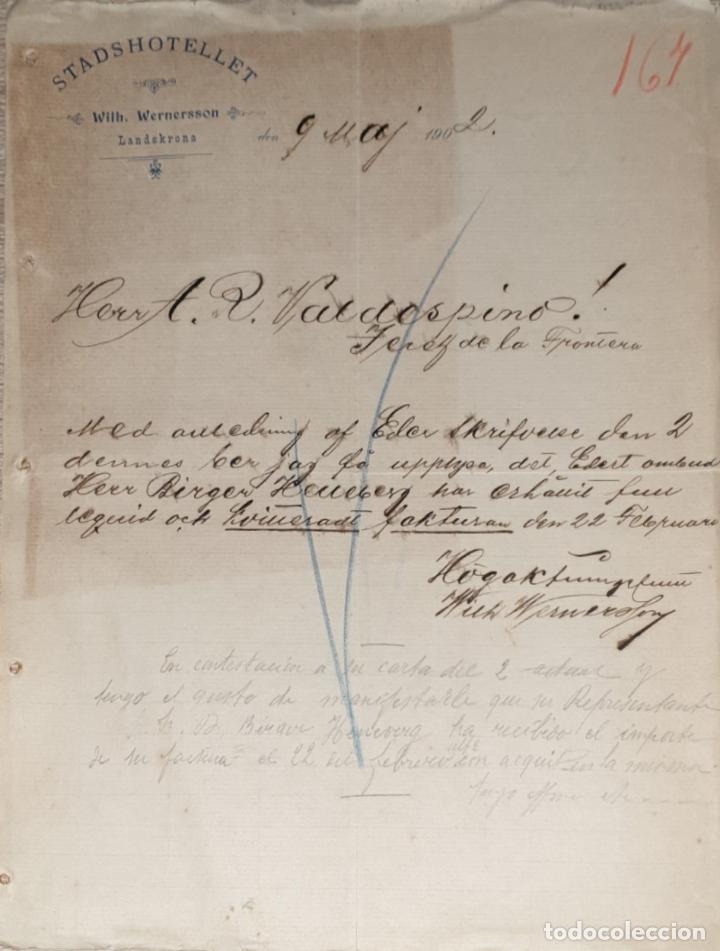 STADSHOTELLET
Wilh. Wernersson
Landskrona
167
den 9 Maj 1902.
Herr A. R. Valdespino!
Jerez de la Frontera
Med anledning af Eder skrifvelse den 2
dennes ber jag få upplysa, att Edert ombud
Herr Birger Heneberg har erhållit full
lequid och kvitteradt fakturan den 22 Februari
Högaktningsfullt
Wilh Wernersson
En contestación a su carta del 2 actual y
tengo el gusto de manifestarle que su Representante
Sr. D. Birger Heneverg ha recibido el importe
de su factura el 22 del febrero con acquit en la misma
suyo affmo
todocoleccion